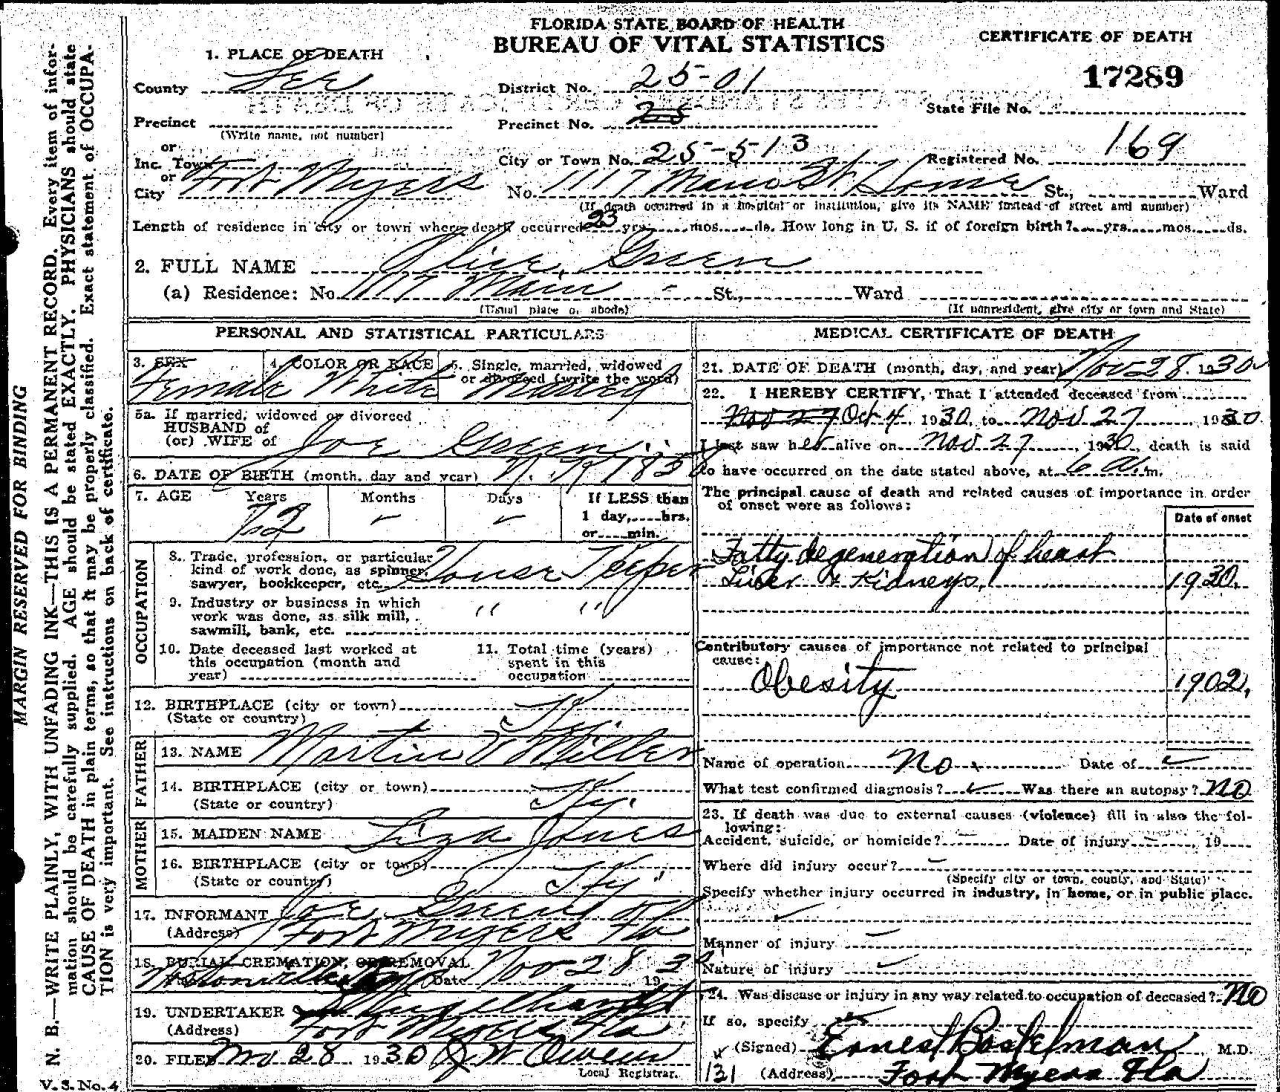 FLORIDA STATE BOARD OF HEALTH
BUREAU OF VITAL STATISTICS
CERTIFICATE OF DEATH
17289
1. PLACE OF DEATH
County Lee
District No. 25-01
State File No.
Precinct
(Write name, not number)
Precinct No. 25
or
Inc. Town
or
City Fort Myers
City or Town No. 25-513
Registered No. 169
No. 1117 Main St Home St., Ward
(If death occurred in a hospital or institution, give its NAME instead of street and number)
Length of residence in city or town where death occurred 23 yrs. mos. ds. How long in U. S. if of foreign birth? yrs. mos. ds.
2. FULL NAME Alice Green
(a) Residence: No. 1117 Main St., Ward
(Usual place of abode) (If nonresident, give city or town and State)
PERSONAL AND STATISTICAL PARTICULARS
3. SEX
Female
4. COLOR OR RACE
White
5. Single, married, widowed
or divorced (write the word)
5a. If married, widowed or divorced
HUSBAND of
(or) WIFE of Joe Green
6. DATE OF BIRTH (month, day and year)
7. AGE Years Months Days If LESS than
1 day, hrs.
or min.
72
OCCUPATION
8. Trade, profession, or particular
kind of work done, as spinner,
sawyer, bookkeeper, etc. House Keeper
9. Industry or business in which
work was done, as silk mill,
sawmill, bank, etc. " "
10. Date deceased last worked at
this occupation (month and
year)
11. Total time (years)
spent in this
occupation
12. BIRTHPLACE (city or town) Ky
(State or country)
FATHER
13. NAME Martin Miller
14. BIRTHPLACE (city or town)
(State or country) Ky.
MOTHER
15. MAIDEN NAME Liza Jones
16. BIRTHPLACE (city or town)
(State or country) Ky.
17. INFORMANT Joe Green
(Address) Fort Myers Fla
18. BURIAL, CREMATION, OR REMOVAL
Date Nov 28 1930
19. UNDERTAKER
(Address) Fort Myers Fla
20. FILED Nov 28 1930 J. W. Owens
Local Registrar.
V. S. No. 4
MEDICAL CERTIFICATE OF DEATH
21. DATE OF DEATH (month, day, and year) Nov 28 1930
22. I HEREBY CERTIFY, That I attended deceased from
Nov 27 Oct 4 1930, to Nov 27, 1930.
I last saw her alive on Nov 27, 1930, death is said
to have occurred on the date stated above, at 6 a.m.
The principal cause of death and related causes of importance in order
of onset were as follows:
Date of onset
Fatty degeneration of heart
Liver & Kidneys. 1930.
Contributory causes of importance not related to principal
cause:
Obesity 1902.
Name of operation No. Date of
What test confirmed diagnosis? Was there an autopsy? No
23. If death was due to external causes (violence) fill in also the fol-
lowing:
Accident, suicide, or homicide? Date of injury 19
Where did injury occur?
(Specify city or town, county, and State)
Specify whether injury occurred in industry, in home, or in public place.
Manner of injury
Nature of injury
24. Was disease or injury in any way related to occupation of deceased? No
If so, specify
(Signed) Ernest Bostelman, M.D.
131 (Address) Fort Myers Fla
MARGIN RESERVED FOR BINDING
N. B.—WRITE PLAINLY, WITH UNFADING INK—THIS IS A PERMANENT RECORD. Every item of infor-
mation should be carefully supplied. AGE should be stated EXACTLY. PHYSICIANS should state
CAUSE OF DEATH in plain terms, so that it may be properly classified. Exact statement of OCCUPA-
TION is very important. See instructions on back of certificate.